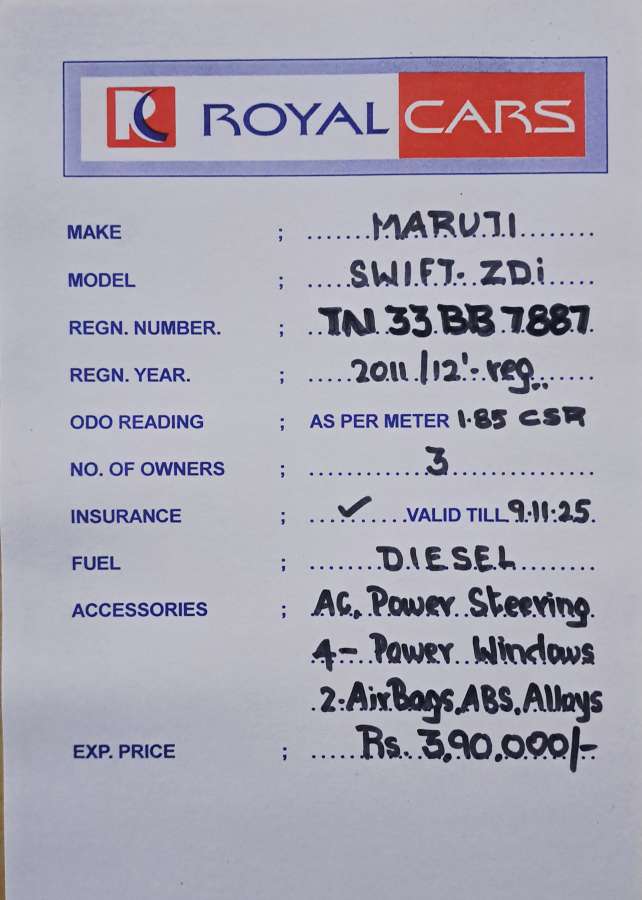 R ROYAL CARS
MAKE ; MARUTI
MODEL ; SWIFT. ZDi
REGN. NUMBER. ; TN 33 BB 7887
REGN. YEAR. ; 2011/12'- reg..
ODO READING ; AS PER METER 1.85 CSR
NO. OF OWNERS ; 3
INSURANCE ; ✓ VALID TILL 9.11.25.
FUEL ; DIESEL
ACCESSORIES ; AC, Power Steering
4- Power Windows
2-AirBags, ABS, Alloys
EXP. PRICE ; Rs. 3,90,000/-